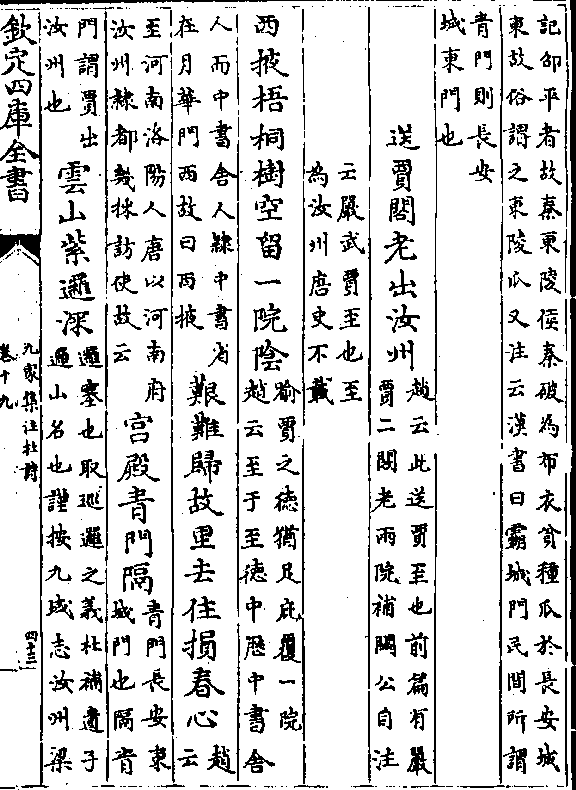 記邵平者故秦東陵侯秦破為布衣貧種瓜於長安城
東故俗謂之東陵瓜又注云漢書曰霸城門民間所謂
青門則長安
城東門也
送賈閣老出汝州
趙云此送賈至也前篇有嚴
賈二閣老兩院補闕公自注
云嚴武賈至也至
為汝州唐史不載
西掖梧桐樹空留一院陰
喻賈之徳猶足庇覆一院
趙云至于至徳中歴中書舍
人而中書舍人隸中書省
在月華門西故曰西掖
艱難歸故里去住損春心
趙
云
至河南洛陽人唐以河南府
汝州隸都畿採訪使故云
宮殿青門隔
青門長安東
城門也隔青
門謂賈出
汝州也
雲山紫邏深
邏塞也取巡邏之義杜補遺子
邏山名也謹按九域志汝州梁
欽定四庫全書
九家集注杜詩
卷十九
四十三